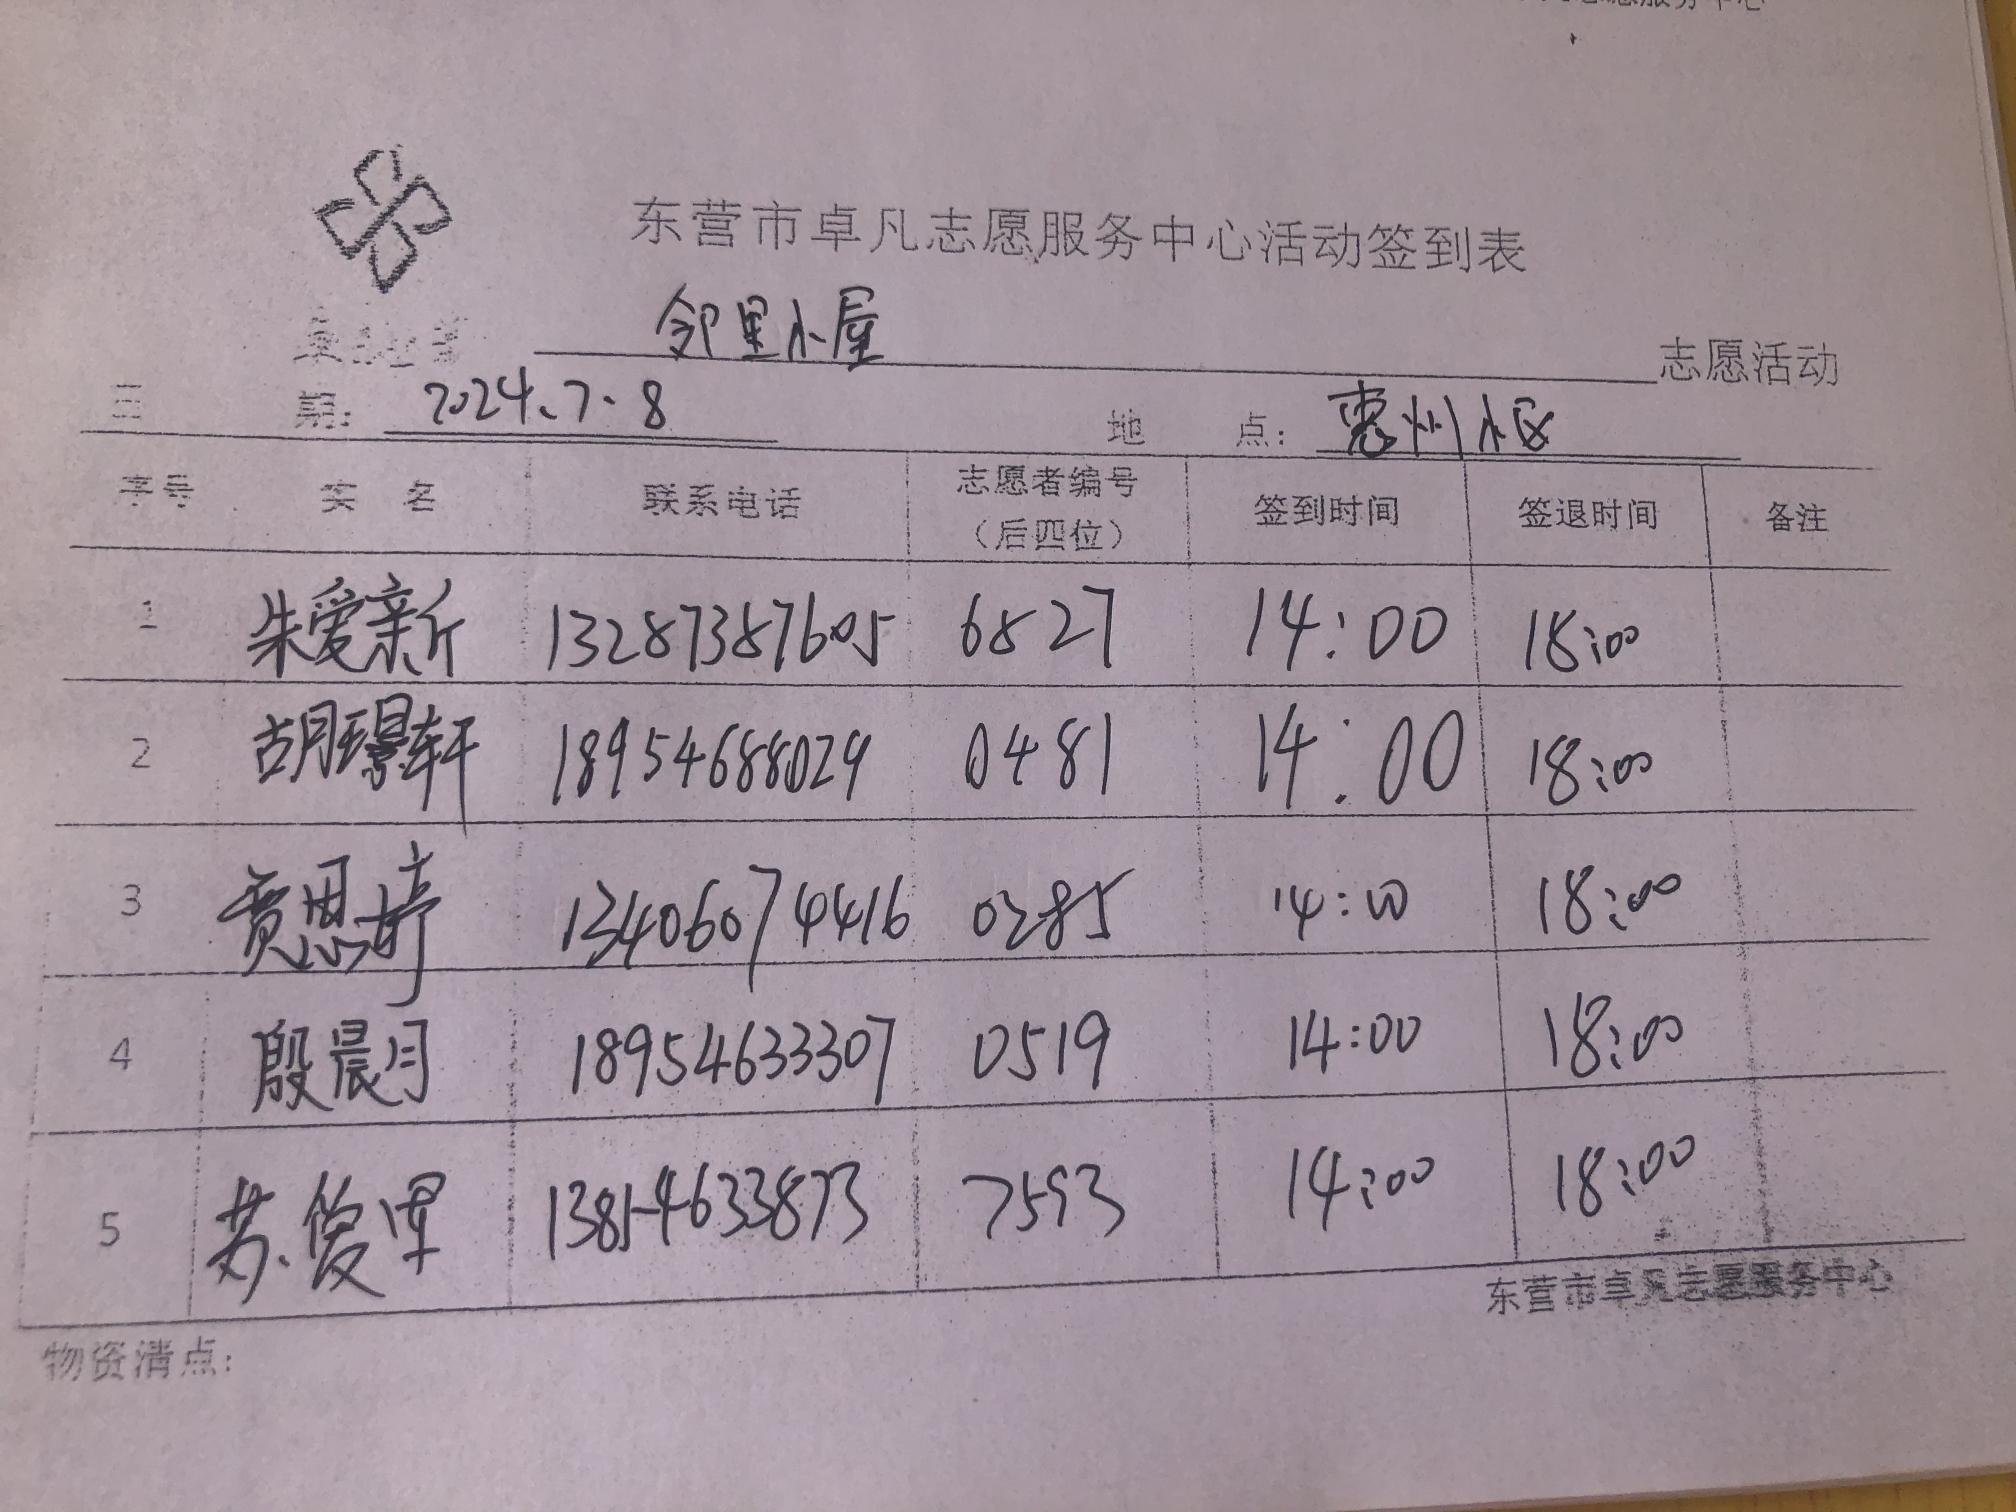 东营市卓凡志愿服务中心活动签到表
邻里小屋 志愿活动
期: 2024.7.8 地 点: 惠州小区
序号 姓 名 联系电话 志愿者编号（后四位） 签到时间 签退时间 备注
1 朱爱新 13287387605 6827 14:00 18:00
2 胡璟轩 18954688029 0481 14:00 18:00
3 贾思婷 13406074416 0285 14:00 18:00
4 殷晨月 18954633307 0519 14:00 18:00
5 苏俊军 13854633873 7593 14:00 18:00
东营市卓凡志愿服务中心
物资清点: